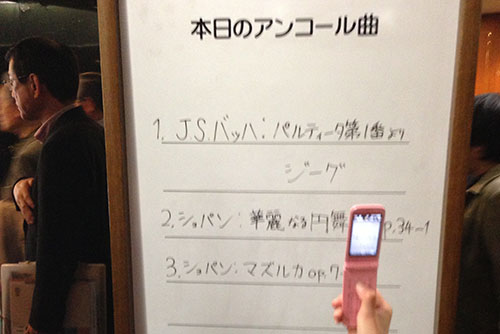 本日のアンコール曲
1. J.S.バッハ：パルティータ第1番より
ジーグ
2.ショパン：華麗なる円舞 op.34-1
3.ショパン：マズルカ op.7-